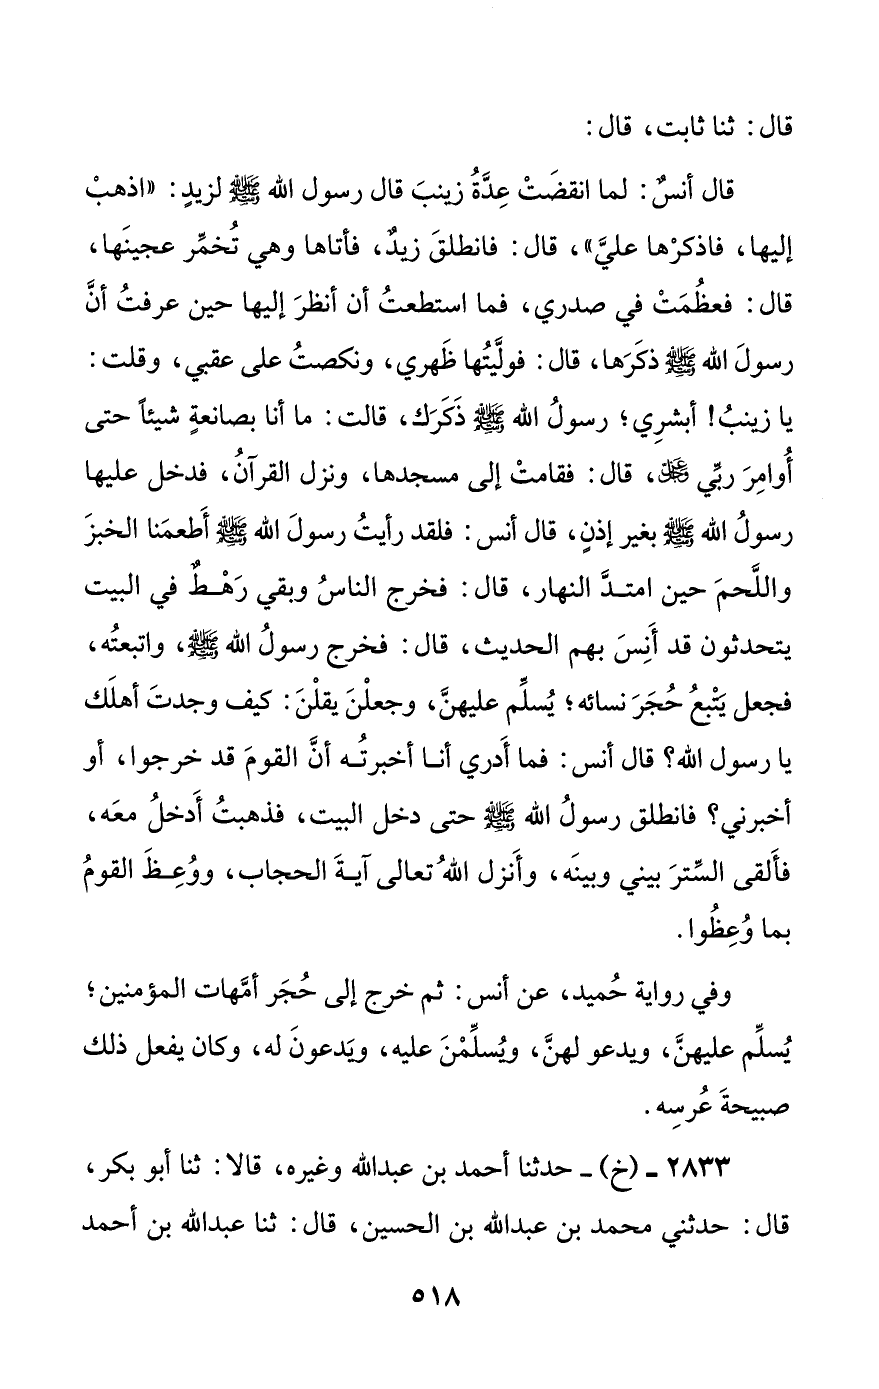 قال: ثنا ثابت، قال:
قال أنسٌ: لما انقضَتْ عِدَّةُ زينبَ قال رسول الله ﷺ لزيدٍ: «اذهبْ
إليها، فاذكرْها عليَّ»، قال: فانطلقَ زيدٌ، فأتاها وهي تُخمِّر عجينَها،
قال: فعظُمَتْ في صدري، فما استطعتُ أن أنظرَ إليها حين عرفتُ أنَّ
رسولَ الله ﷺ ذكَرَها، قال: فولَّيتُها ظَهري، ونكصتُ على عقبي، وقلت:
يا زينبُ! أبشرِي؛ رسولُ الله ﷺ ذَكَرَك، قالت: ما أنا بصانعةٍ شيئاً حتى
أُوامِرَ ربِّي ﷿، قال: فقامتْ إلى مسجدها، ونزل القرآنُ، فدخل عليها
رسولُ الله ﷺ بغير إذنٍ، قال أنس: فلقد رأيتُ رسولَ الله ﷺ أَطعمَنا الخبزَ
واللَّحمَ حين امتـدَّ النهار، قال: فخرج الناسُ وبقي رَهْـطٌ في البيت
يتحدثون قد أَنِسَ بهم الحديث، قال: فخرج رسولُ الله ﷺ، واتبعتُه،
فجعل يَتْبعُ حُجَرَ نسائه؛ يُسلِّم عليهنَّ، وجعلْنَ يقلْنَ: كيف وجدتَ أهلَك
يا رسول الله؟ قال أنس: فما أَدري أنـا أخبرتُـه أنَّ القومَ قد خرجوا، أو
أخبرني؟ فانطلق رسولُ الله ﷺ حتى دخل البيت، فذهبتُ أَدخلُ معَه،
فأَلقى السِّترَ بيني وبينَه، وأَنزل اللهُ تعالى آيـةَ الحجاب، ووُعِـظَ القومُ
بما وُعِظُوا.
وفي رواية حُميد، عن أنس: ثم خرج إلى حُجَر أمَّهات المؤمنين؛
يُسلِّم عليهنَّ، ويدعو لهنَّ، ويُسلِّمْنَ عليه، ويَدعونَ له، وكان يفعل ذلك
صبيحةَ عُرسِه.
٢٨٣٣ ـ (خ) ـ حدثنا أحمد بن عبدالله وغيره، قالا: ثنا أبو بكر،
قال: حدثني محمد بن عبدالله بن الحسين، قال: ثنا عبدالله بن أحمد
٥١٨